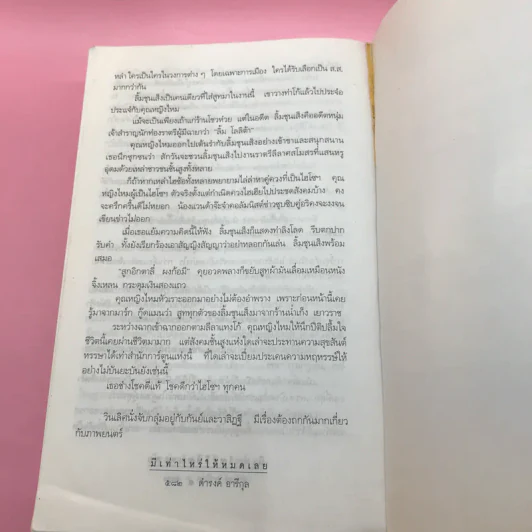 หล่า ใครเป็นใครในวงการต่าง ๆ โดยเฉพาะการเมือง ใครได้รับเลือกเป็น ส.ส.
มากกว่ากัน
ลิ้มซุนเส็งเป็นคนเดียวที่ใส่สูทมาในงานนี้ เขาวางท่าโก้แล้วไปประจ๋อ
ประแจ๋กับคุณหญิงใหม่
แม้จะเป็นเพียงเถ้าแก่ร้านโชวห่วย แต่ในอดีต ลิ้มซุนเส็งคืออดีตหนุ่ม
เจ้าสำราญนักท่องราตรีผู้มีฉายาว่า "ลิ้ม โลลิต้า"
คุณหญิงใหม่ออกไปเต้นรำกับลิ้มซุนเส็งอย่างเร้าขาและสนุกสนาน
เธอนึกซุกซนว่า สักวันจะชวนลิ้มซุนเส็งไปงานราตรีลีลาศสโมสรที่แสนหรู
อุดมด้วยเหล่าชาวชนชั้นสูงทั้งหลาย
ก็ถ้าหากเหล่าไฮซ้อทั้งหลายพยายามไล่ล่าหาคู่ควงที่เป็นไฮโซฯ คุณ
หญิงใหม่ผู้เป็นไฮโซฯ ตัวจริงตั้งแต่กำเนิดควงไฮเฮียไปประชดสังคมบ้าง คง
จะครึกครื้นดีไม่หยอก น้องแวนด้าจ๊ะจ๋าคอลัมนิสต์ข่าวซุบซิบคู่อริคงจะงงจน
เขียนข่าวไม่ออก
เมื่อเธอแย้มความคิดนี้ให้ฟัง ลิ้มซุนเส็งก็แสดงท่าลิงโลด รีบตกปาก
รับคำ ทั้งยังเรียกร้องเอาสัญญิงสัญญาว่าอย่าหลอกกันเล่น ลิ้มซุนเส็งพร้อม
เสมอ
"ลูกอีกตาลี่ ผงก้อมี" คุยอวดพลางก็ขยับสูทผ้ามันเลื่อมเหมือนหนัง
จิ้งเหลน กระดุมเงินสองแถว
คุณหญิงใหม่หัวเราะออกมาอย่างไม่ต้องอำพราง เพราะก่อนหน้านี้เคย
รู้มาจากมาร์ก กู๊ดแมนว่า สูททุกตัวของลิ้มซุนเส็งมาจากร้านน่ำเก็ง เยาวราช
ระหว่างฉากเข้าฉากออกตามลีลาแทงโก้ คุณหญิงใหม่ให้นึกปีติปลื้มใจ
ชีวิตนี้เคยผ่านชีวิตมามาก แต่สังคมชั้นสูงแห่งใดเล่าจะประทานความสุขสันต์
หรรษาได้เท่าสำนักการ์ตูนแห่งนี้ ที่ใดเล่าจะเปี่ยมประเคนความหฤหรรษ์ให้
อย่างไม่บันยะบันยังเช่นนี้
เธอช่างโชคดีแท้ โชคดีกว่าไฮโซฯ ทุกคน
วินเลิศนั่งจับกลุ่มอยู่กับกันย์และวาสิฏฐี มีเรื่องต้องถกกันมากเกี่ยว
กับภาพยนตร์
มีเท่าไหร่ให้หมดเลย
๕๘๒ ๏ ดำรงค์ อารีกุล